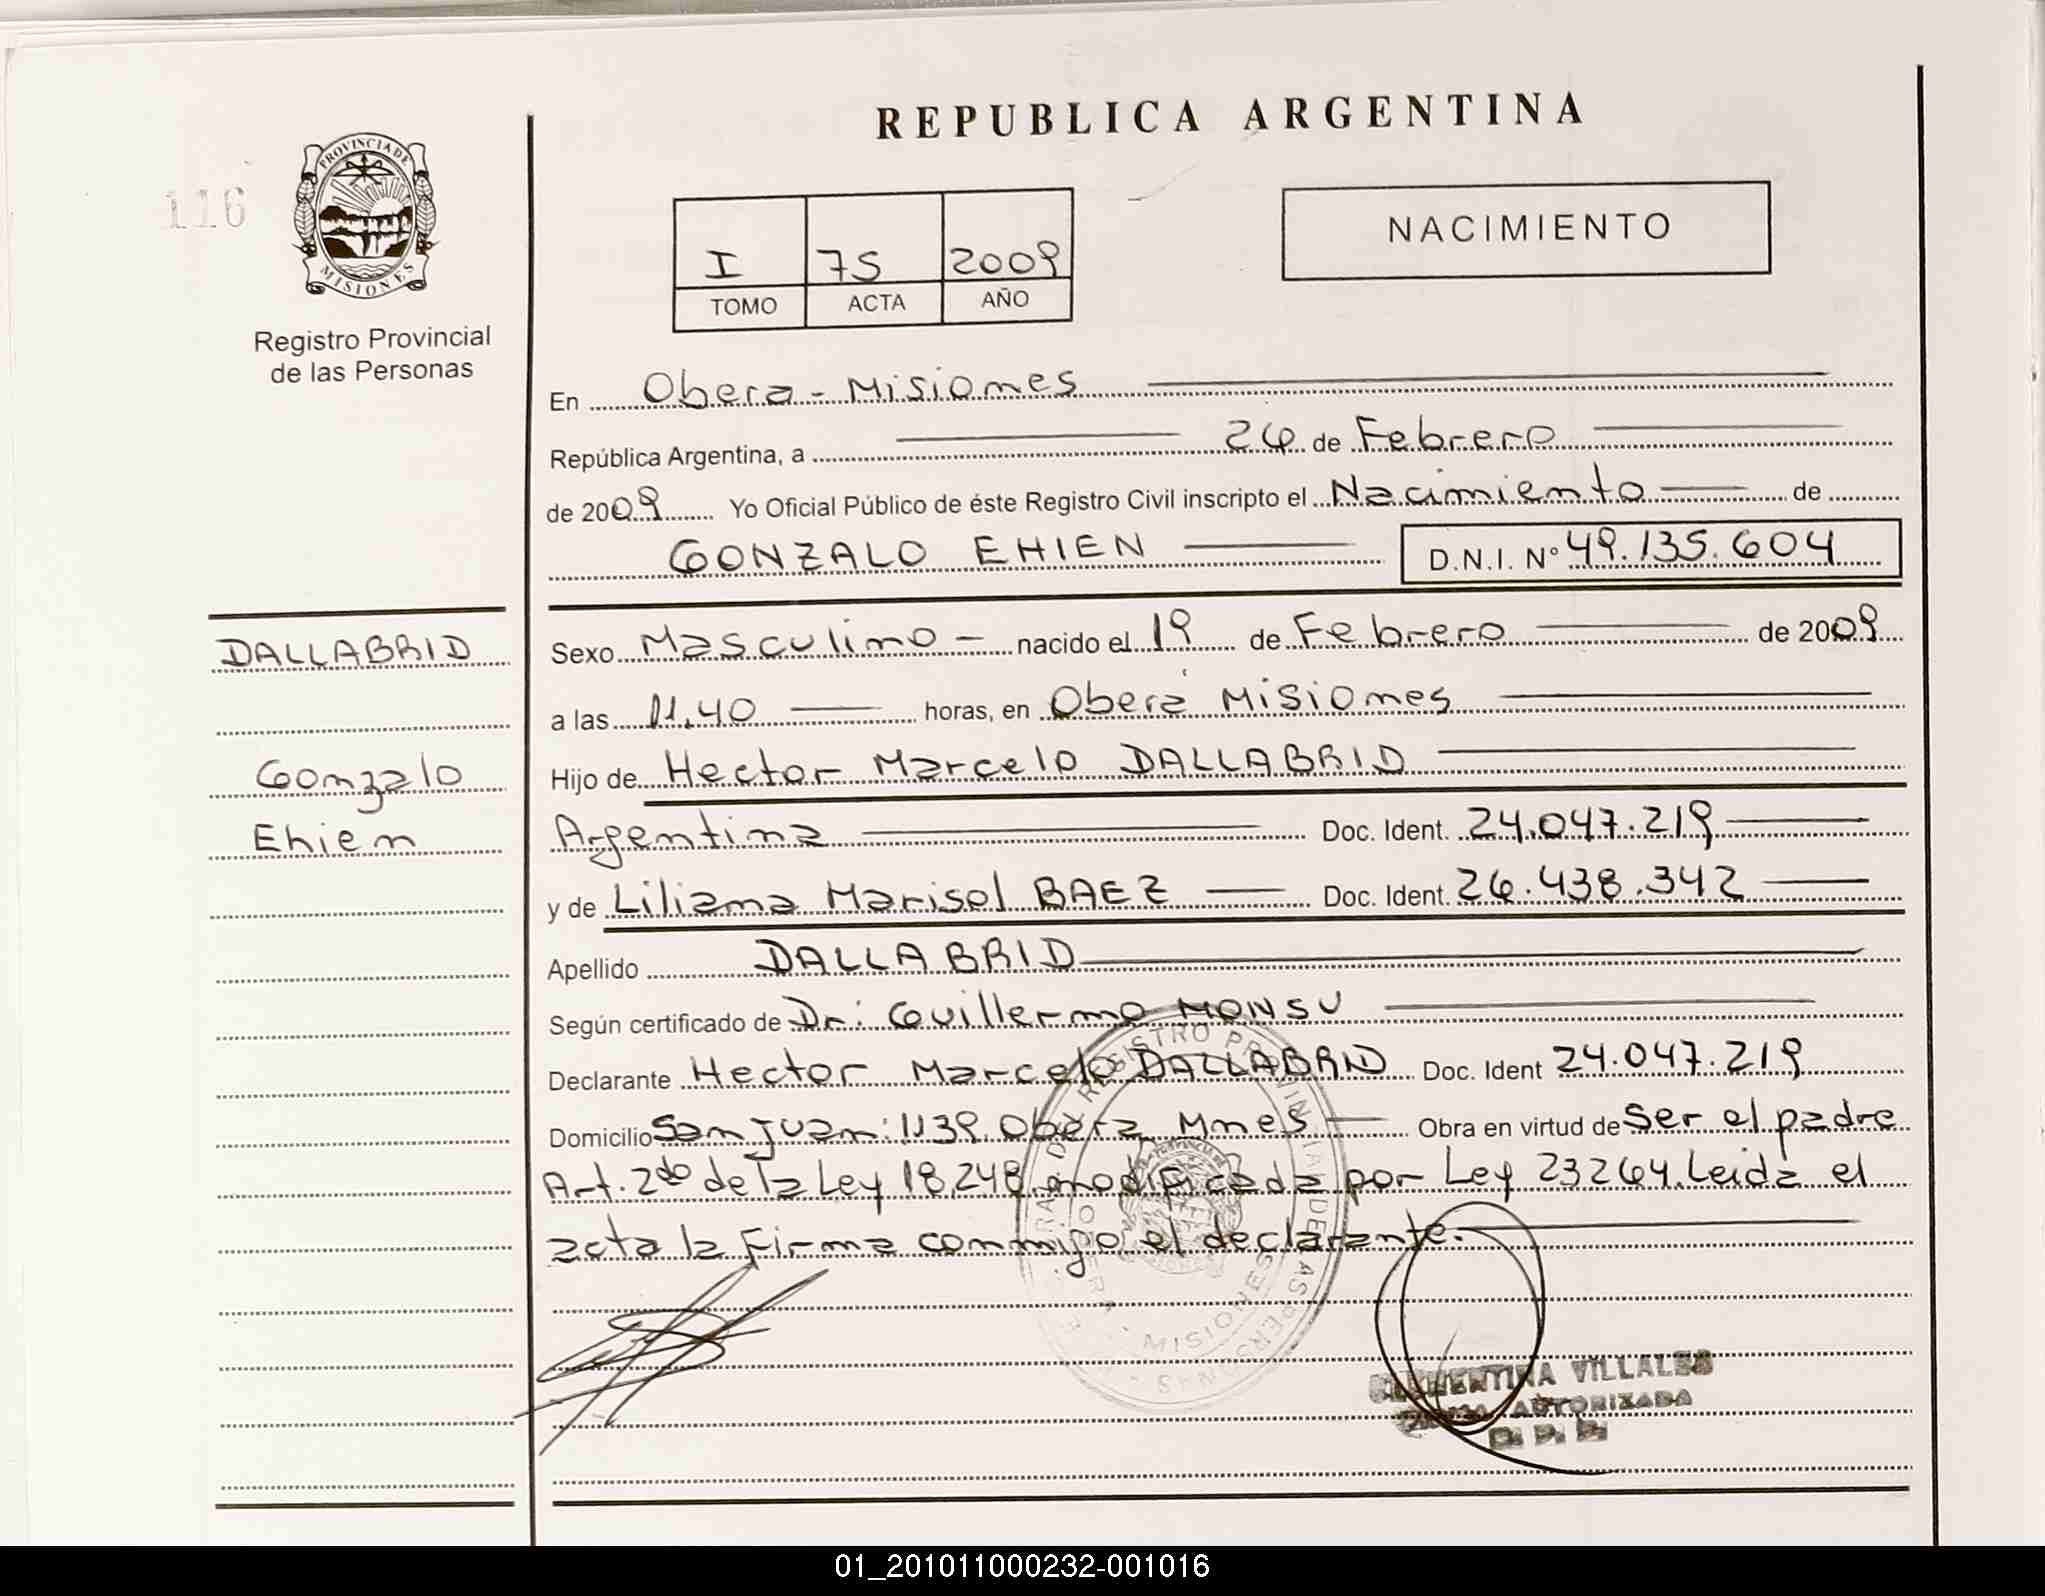 REPUBLICA ARGENTINA
116
PROVINCIA DE
MISIONES
Registro Provincial
de las Personas
I 75 2009
TOMO ACTA AÑO
NACIMIENTO
En Obera - Misiones
República Argentina, a 26 de Febrero
de 2009 Yo Oficial Público de éste Registro Civil inscripto el Nacimiento de
GONZALO EHIEN D.N.I. Nº 49.135.604
DALLABRID
Gonzalo
Ehien
Sexo Masculino - nacido el 19 de Febrero de 2009
a las 11,40 horas, en Oberá Misiones
Hijo de Hector Marcelo DALLABRID
Argentina Doc. Ident. 24.047.219
y de Liliana Marisol BAEZ Doc. Ident. 26.438.342
Apellido DALLABRID
Según certificado de Dr: Guillermo MONSU
Declarante Hector Marcelo DALLABRID Doc. Ident 24.047.219
Domicilio San Juan: 1139 Obera Mnes Obra en virtud de Ser el padre
Art. 2do de la Ley 18,248 modificada por Ley 23264. Leida el
acta la Firma conmigo el declarante.
REGISTRO PROVINCIAL DE LAS PERSONAS
MISIONES
VILLALBA
AUTORIZADA
01_201011000232-001016